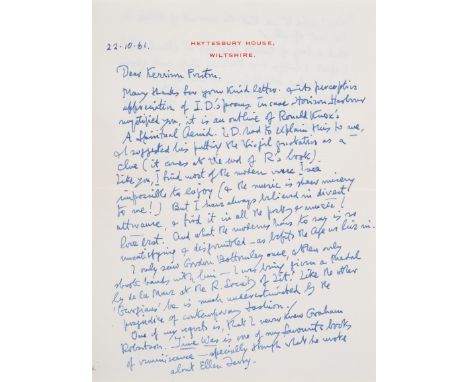 22-10-61.
HEYTESBURY HOUSE,
WILTSHIRE.
Dear Kerrison Preston.
Many thanks for your kind letter. & its perceptive
appreciation of I.D's poems. In case Horizon Harbour
mystified you, it is an outline of Ronald Knox's
A Spiritual Aeneid. I.D. had to explain this to me,
& I suggested his putting the Virgil quotation as a
clue (it comes at the end of R's book).
Like you, I find most of the modern verse I see
impossible to enjoy (& the music is sheer misery
to me!) But I have always believed in direct
utterance & find it in all the poetry & music I
love best. And what the moderns have to say is so
unsatisfying & disgruntled – as befits the Age we live in.
I only saw Gordon Bottomley once, & then only
shook hands with him – I was being given a medal
by de la Mare at the R. Society of Lit. Like the other
'Georgians' he is much underestimated by the
prejudice of contemporary fashion!
One of my regrets is, that I never knew Graham
Robertson. Time Was is one of my favourite books
of reminiscence – specially though what he wrote
about Ellen Terry.